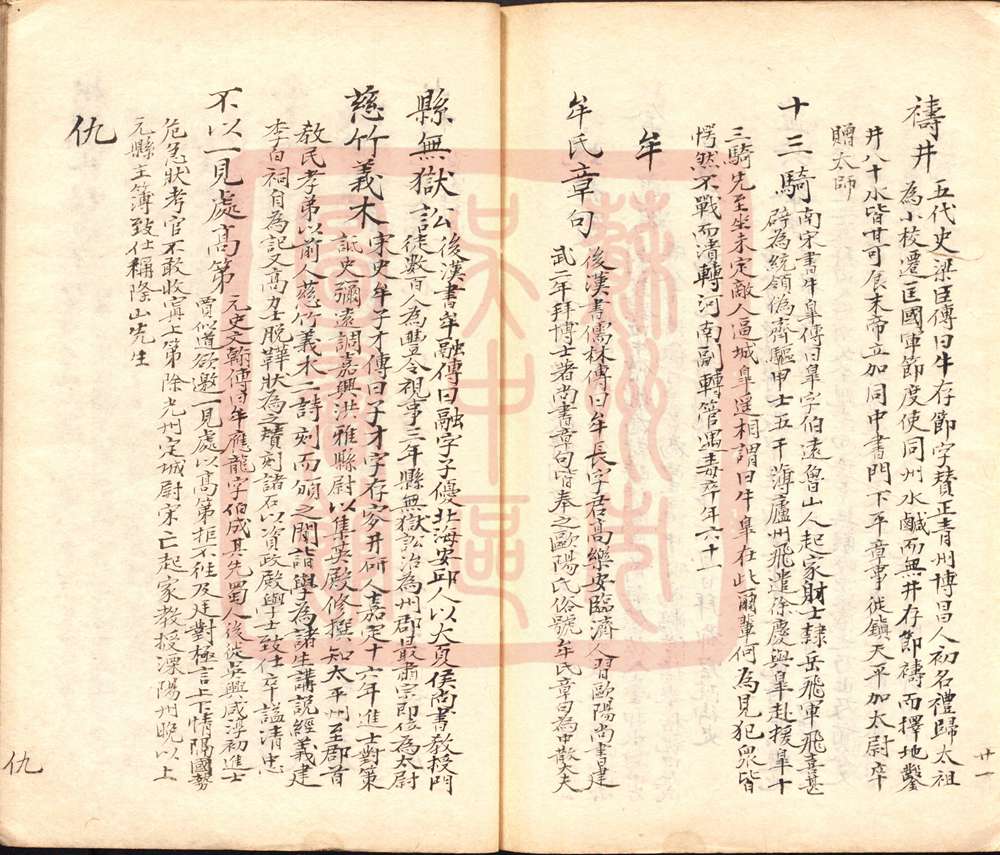 禱井五代史梁臣傳曰牛存節字賛正青州博昌人初名禮歸太祖
為小校遷匡國軍節度使同州水鹹而無井存節禱而擇地鑿
井八十水皆甘可食末帝立加同中書門下平章事徙鎮天平加太尉卒
贈太師
十三騎南宋書牛皐傳曰皐字伯遠魯山人起家射士隸岳飛軍飛喜甚
辟為統領偽齊驅甲士五千薄廬州飛遣徐慶與皐赴援皐十
三騎先至坐未定敵人逼城皐遥相謂曰牛皐在此爾輩何為見犯衆皆
愕然不戰而潰轉河南副轉管遇毒卒年六十一
牟
牟氏章句後漢書儒林傳曰牟長字君高樂安臨濟人習歐陽尚書建
武二年拜博士著尚書章句皆奉之歐陽氏俗號牟氏章句為中散大夫
縣無獄訟後漢書牟融傳曰融字子優北海安邱人以大夏侯尚書教授門
徒數百人為豐令視事三年縣無獄訟治為州郡最肅宗即位為太尉
慈竹義木宋史牟子才傳曰子才字存叟井研人嘉定十六年進士對策
詆史彌遠調嘉興洪雅縣尉以集英殿修撰知太平州至郡首
教民孝弟以前人慈竹義木二詩刻而頒之間詣學為諸生講說經義建
李白祠自為記又高力士脫鞾狀為之賛刻諸石以資政殿學士致仕卒謚清忠
不以一見處高第元史文翰傳曰牟應龍字伯成其先蜀人後徙吳興咸淳初進士
賈似道欲邀一見處以高第拒不往及廷對極言上下情隔國勢
危急狀考官不敢收寘上第除光州定城尉宋亡起家教授溧陽州晚以上
元縣主簿致仕稱隆山先生
仇
仇
廿一